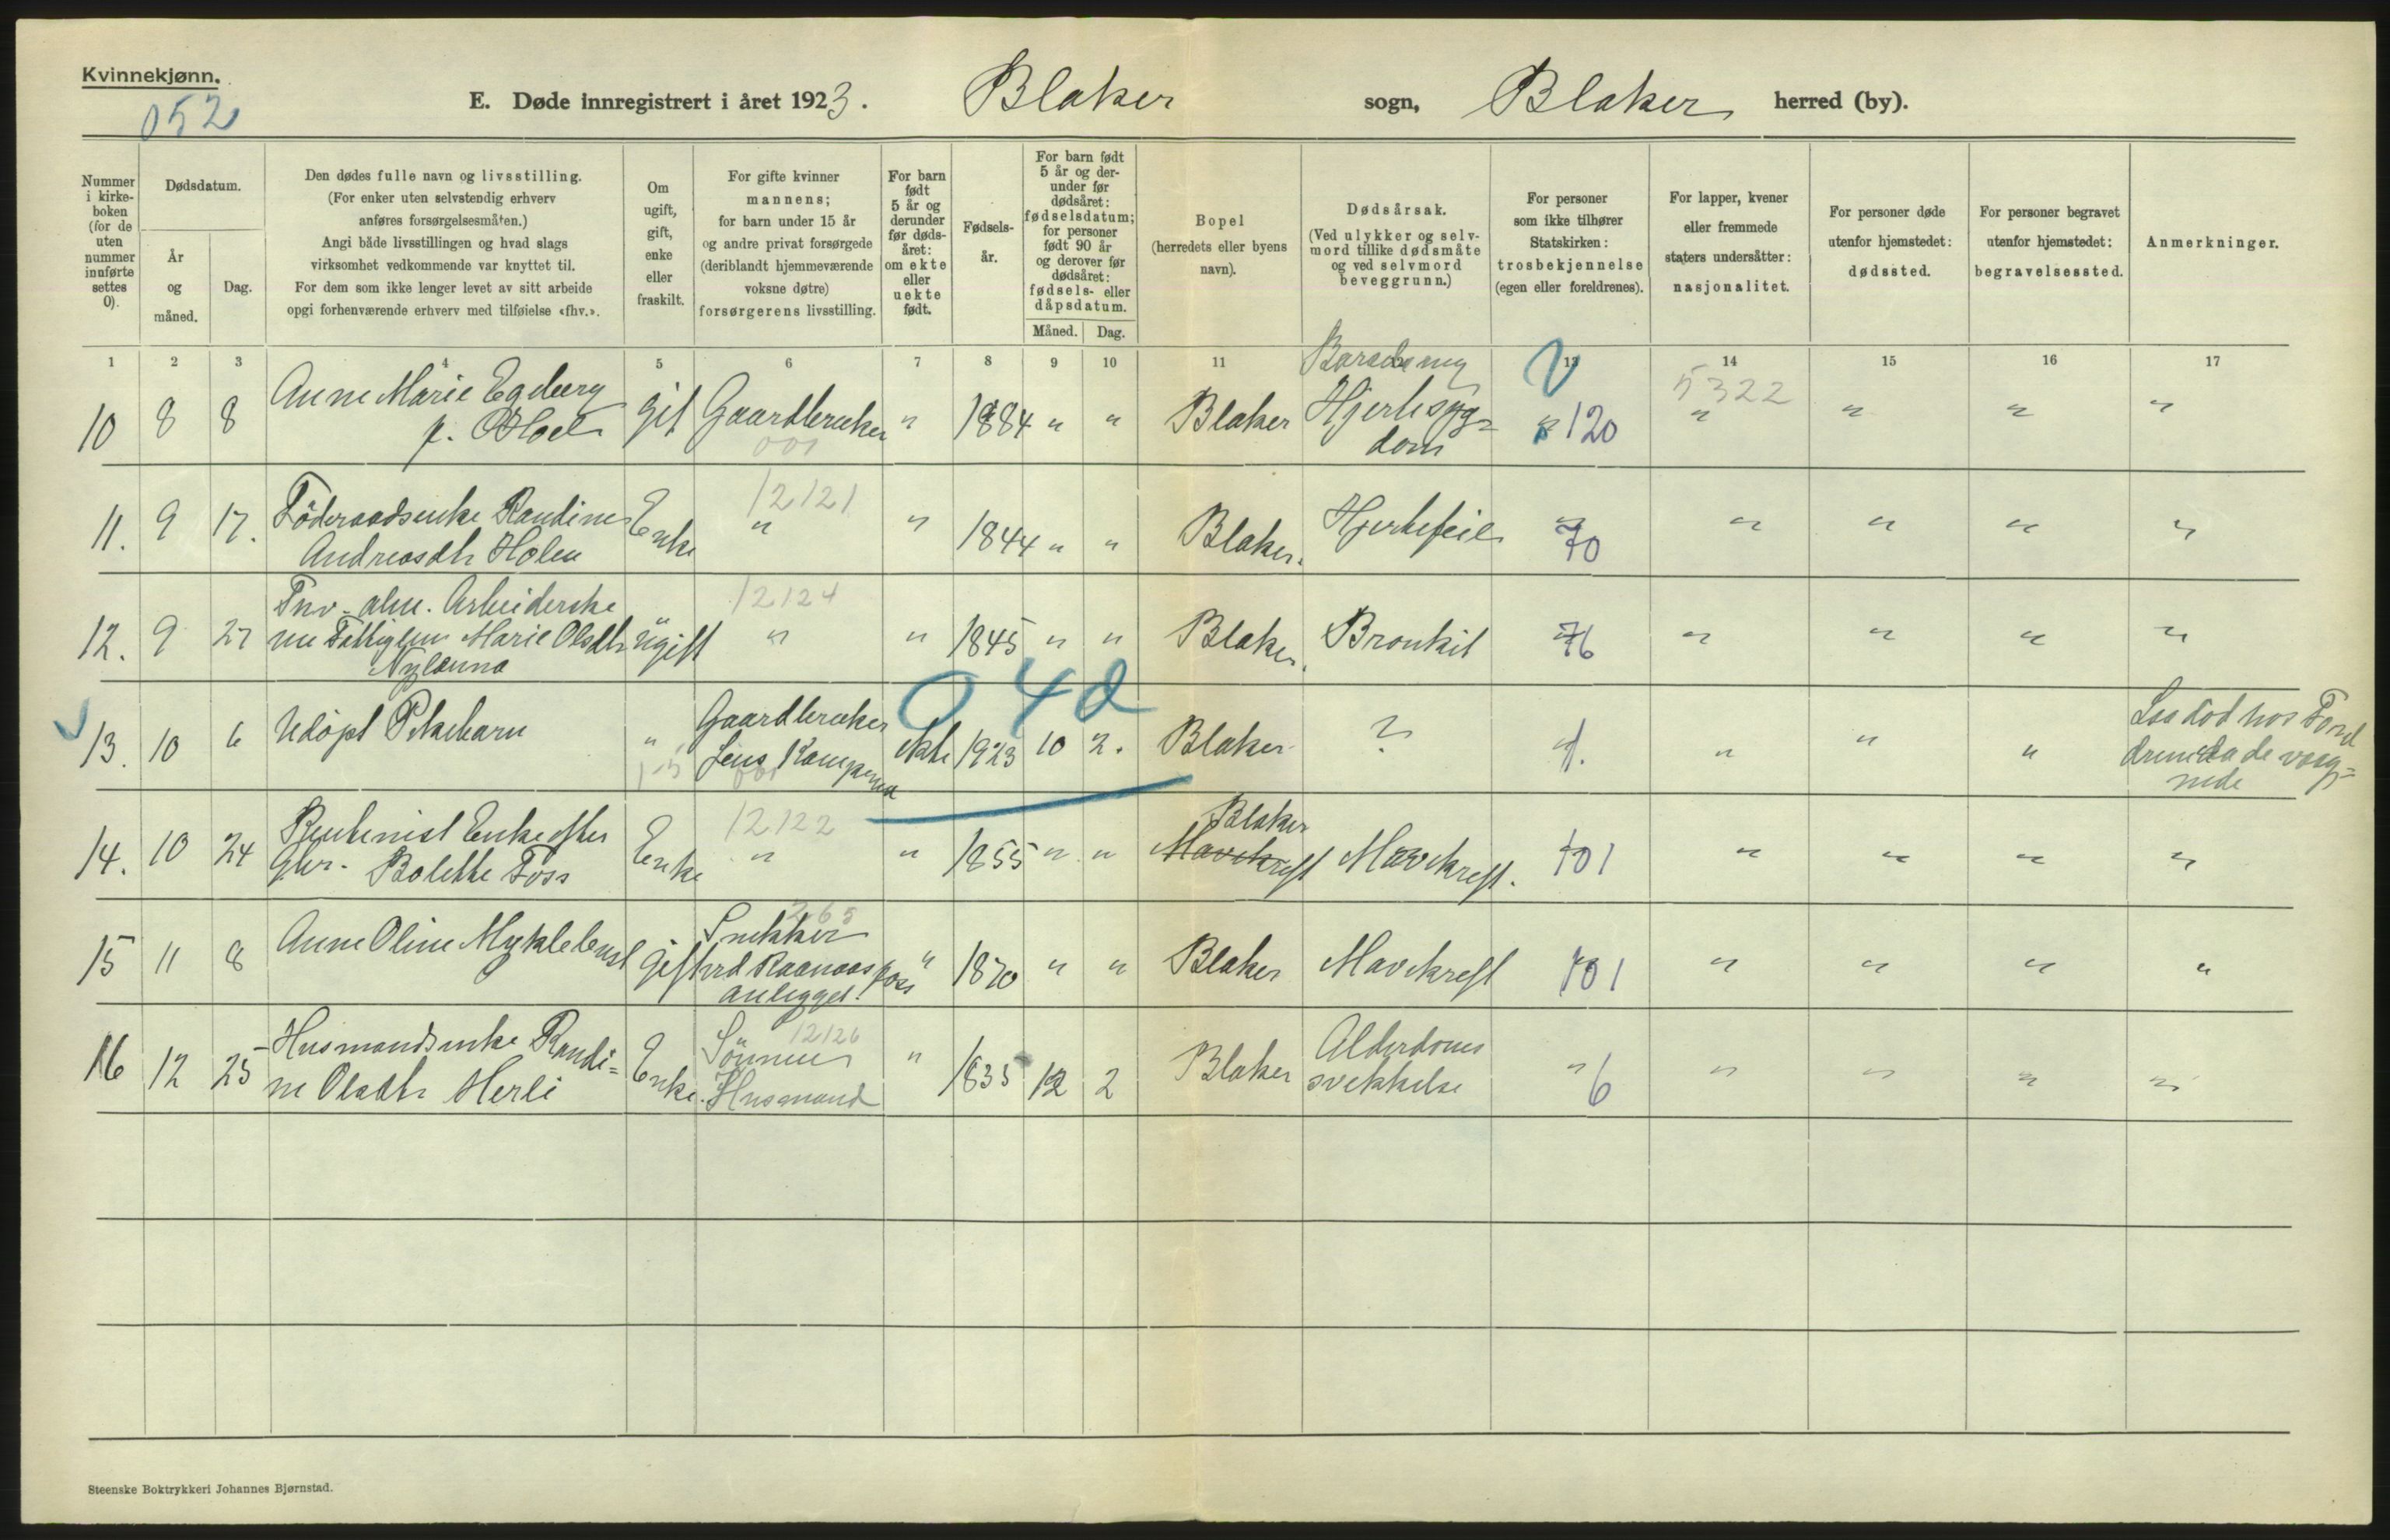 Kvinnekjønn.
052
E. Døde innregistrert i året 1923. Blaker sogn, Blaker herred (by).
Nummer i kirke- boken (for de uten nummer innførte settes 0).
Dødsdatum.
År og måned.
Dag.
Den dødes fulle navn og livsstilling.
(For enker uten selvstendig erhverv
anføres forsørgelsesmåten.)
Angi både livsstillingen og hvad slags
virksomhet vedkommende var knyttet til.
For dem som ikke lenger levet av sitt arbeide
opgi forhenværende erhverv med tilføielse «fhv.».
Om ugift, gift, enke eller fraskilt.
For gifte kvinner
mannens;
for barn under 15 år
og andre privat forsørgede
(deriblandt hjemmeværende
voksne døtre)
forsørgerens livsstilling.
For barn født 5 år og derunder før døds- året: om ekte eller uekte født.
Fødsels- år.
For barn født 5 år og der- under før dødsåret: fødselsdatum; for personer født 90 år og derover før dødsåret: fødsels- eller dåpsdatum.
Måned. Dag.
Bopel
(herredets eller byens
navn).
Dødsårsak.
(Ved ulykker og selv-
mord tillike dødsmåte
og ved selvmord
beveggrunn.)
For personer
som ikke tilhører
Statskirken:
trosbekjennelse
(egen eller foreldrenes).
For lapper, kvener
eller fremmede
staters undersåtter:
nasjonalitet.
For personer døde
utenfor hjemstedet:
dødssted.
For personer begravet
utenfor hjemstedet:
begravelsessted.
Anmerkninger.
1 2 3 4 5 6 7 8 9 10 11 12 13 14 15 16 17
10 8 8 Anne Marie Egeberg gif Gaardbruker " 1884 " " Blaker Hjertesyg= " 120 5322 " " " "
f. Hoel 001 dom
11. 9 17. Föderaadsenke Randine Enke 12121 " " 1844 " " Blaker. Hjertefeil " 70 " " " "
Andreasdtr Holen
12. 9 27 Arbeiderske ugift 12124 " " 1845 " " Blaker. Bronkit " 76 " " " "
Marie Olsdtr
040
13. 10 6 Udöpt Pikebarn " Gaardbruker ekte 1923 10 2. Blaker ? 1. " " " Laa död hos Forel
1-5 Jens 001 drene da de vaag=
nede
14. 10 24 Enke efter Enke 12122 " " 1855 " " Mavekreft Blaker Mavekreft. 101 " " " "
Bolette Foss
15 11 8 Anne Oline Myklebust gift 265 Snekker " 1870 " " Blaker Mavekreft 101 " " " "
ved Raanaasfoss
anlegget.
16 12 25 Husmandsenke Randi= Enke. 12126 Sönnen " 1835 12 2 Blaker Alderdoms " 6 " " " "
ne Olsdtr Herli Husmand svekkelse
Steenske Boktrykkeri Johannes Bjørnstad.